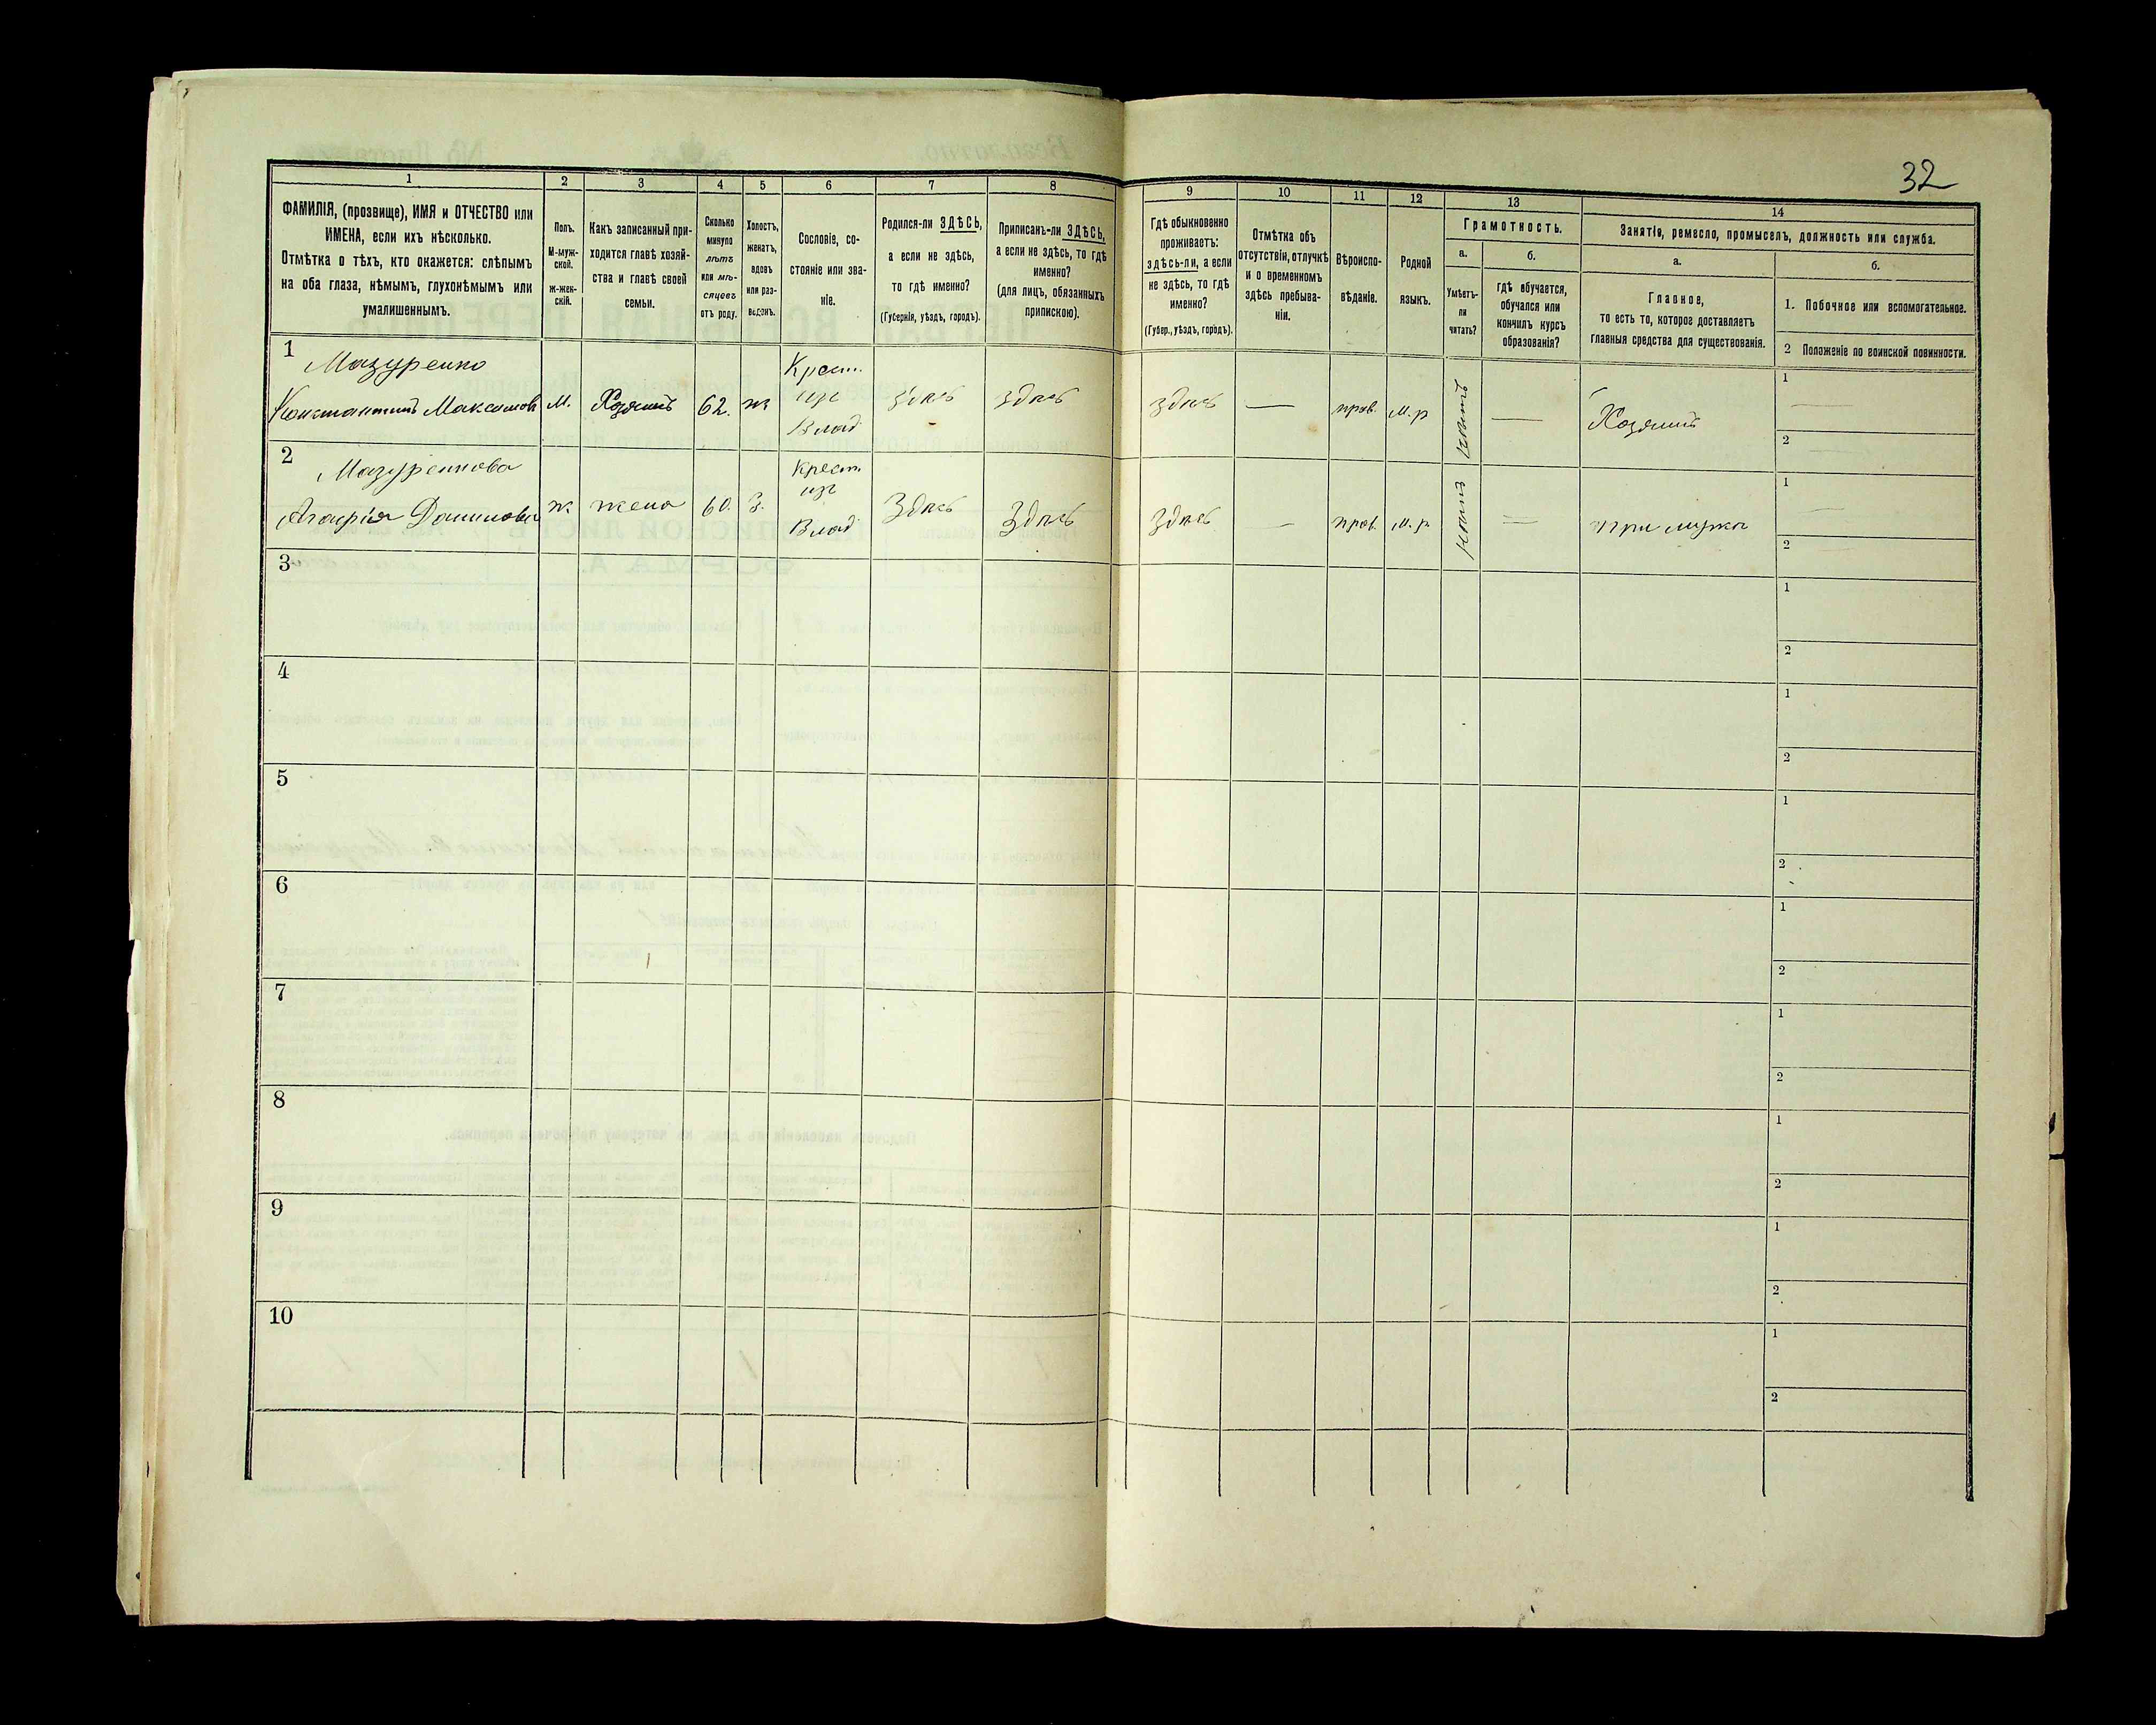 32
1
2
3
4
5
6
7
8
9
10
11
12
13
14
ФАМИЛІЯ, (прозвище), ИМЯ и ОТЧЕСТВО или
ИМЕНА, если ихъ нѣсколько.
Отмѣтка о тѣхъ, кто окажется: слѣпымъ
на оба глаза, нѣмымъ, глухонѣмымъ или
умалишеннымъ.
Полъ.
М-муж-
ской.
Ж-жен-
скій.
Какъ записанный при-
ходится главѣ хозяй-
ства и главѣ своей
семьи.
Сколько
минуло
лѣтъ
или мѣ-
сяцевъ
отъ роду.
Холостъ,
женатъ,
вдовъ
или раз-
веденъ.
Сословіе, со-
стояніе или зва-
ніе.
Родился-ли ЗДѢСЬ,
а если не здѣсь,
то гдѣ именно?
(Губернія, уѣздъ, городъ).
Приписанъ-ли ЗДѢСЬ,
а если не здѣсь, то гдѣ
именно?
(для лицъ, обязанныхъ
припискою).
Гдѣ обыкновенно
проживаетъ:
здѣсь-ли, а если
не здѣсь, то гдѣ
именно?
(Губер., уѣздъ, городъ).
Отмѣтка объ
отсутствіи, отлучкѣ
и о временномъ
здѣсь пребыва-
ніи.
Вѣроиспо-
вѣданіе.
Родной
языкъ.
Грамотность.
а.
Умѣетъ-
ли
читать?
б.
гдѣ обучается,
обучался или
кончилъ курсъ
образованія?
Занятіе, ремесло, промыселъ, должность или служба.
а.
Главное,
то есть то, которое доставляетъ
главныя средства для существованія.
б.
1. Побочное или вспомогательное.
2 Положеніе по воинской повинности.
1
Мазуренко
Константинъ Максимовъ
М.
Хозяинъ
62.
ж
Крест.
изъ
Влад
здѣсь
здѣсь
здѣсь
—
прав.
м.р
нѣтъ
—
Хозяинъ
1
2
2
Мазуренкова
Агафія Данилова
ж
жена
60.
з.
Крест.
изъ
Влад
Здѣсь
Здѣсь
Здѣсь
—
прав.
м.р
нѣтъ
—
при мужѣ
1
2
3
1
2
4
1
2
5
1
2
6
1
2
7
1
2
8
1
2
9
1
2
10
1
2